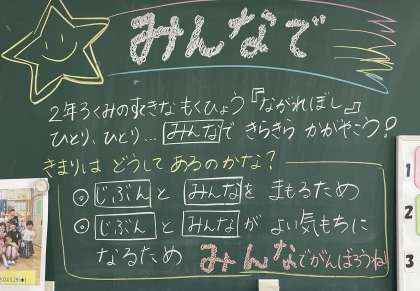 みんなで
2年3くみのすてきなもくひょう『ながれぼし』
ひとり、ひとり…みんなで きらきら かがやこう!
きまりは どうして あるのかな?
◎ じぶん と みんな を まもるため
◎ じぶん と みんな が よい気もちに
なるため みんなでがんばろうね
1
2
3